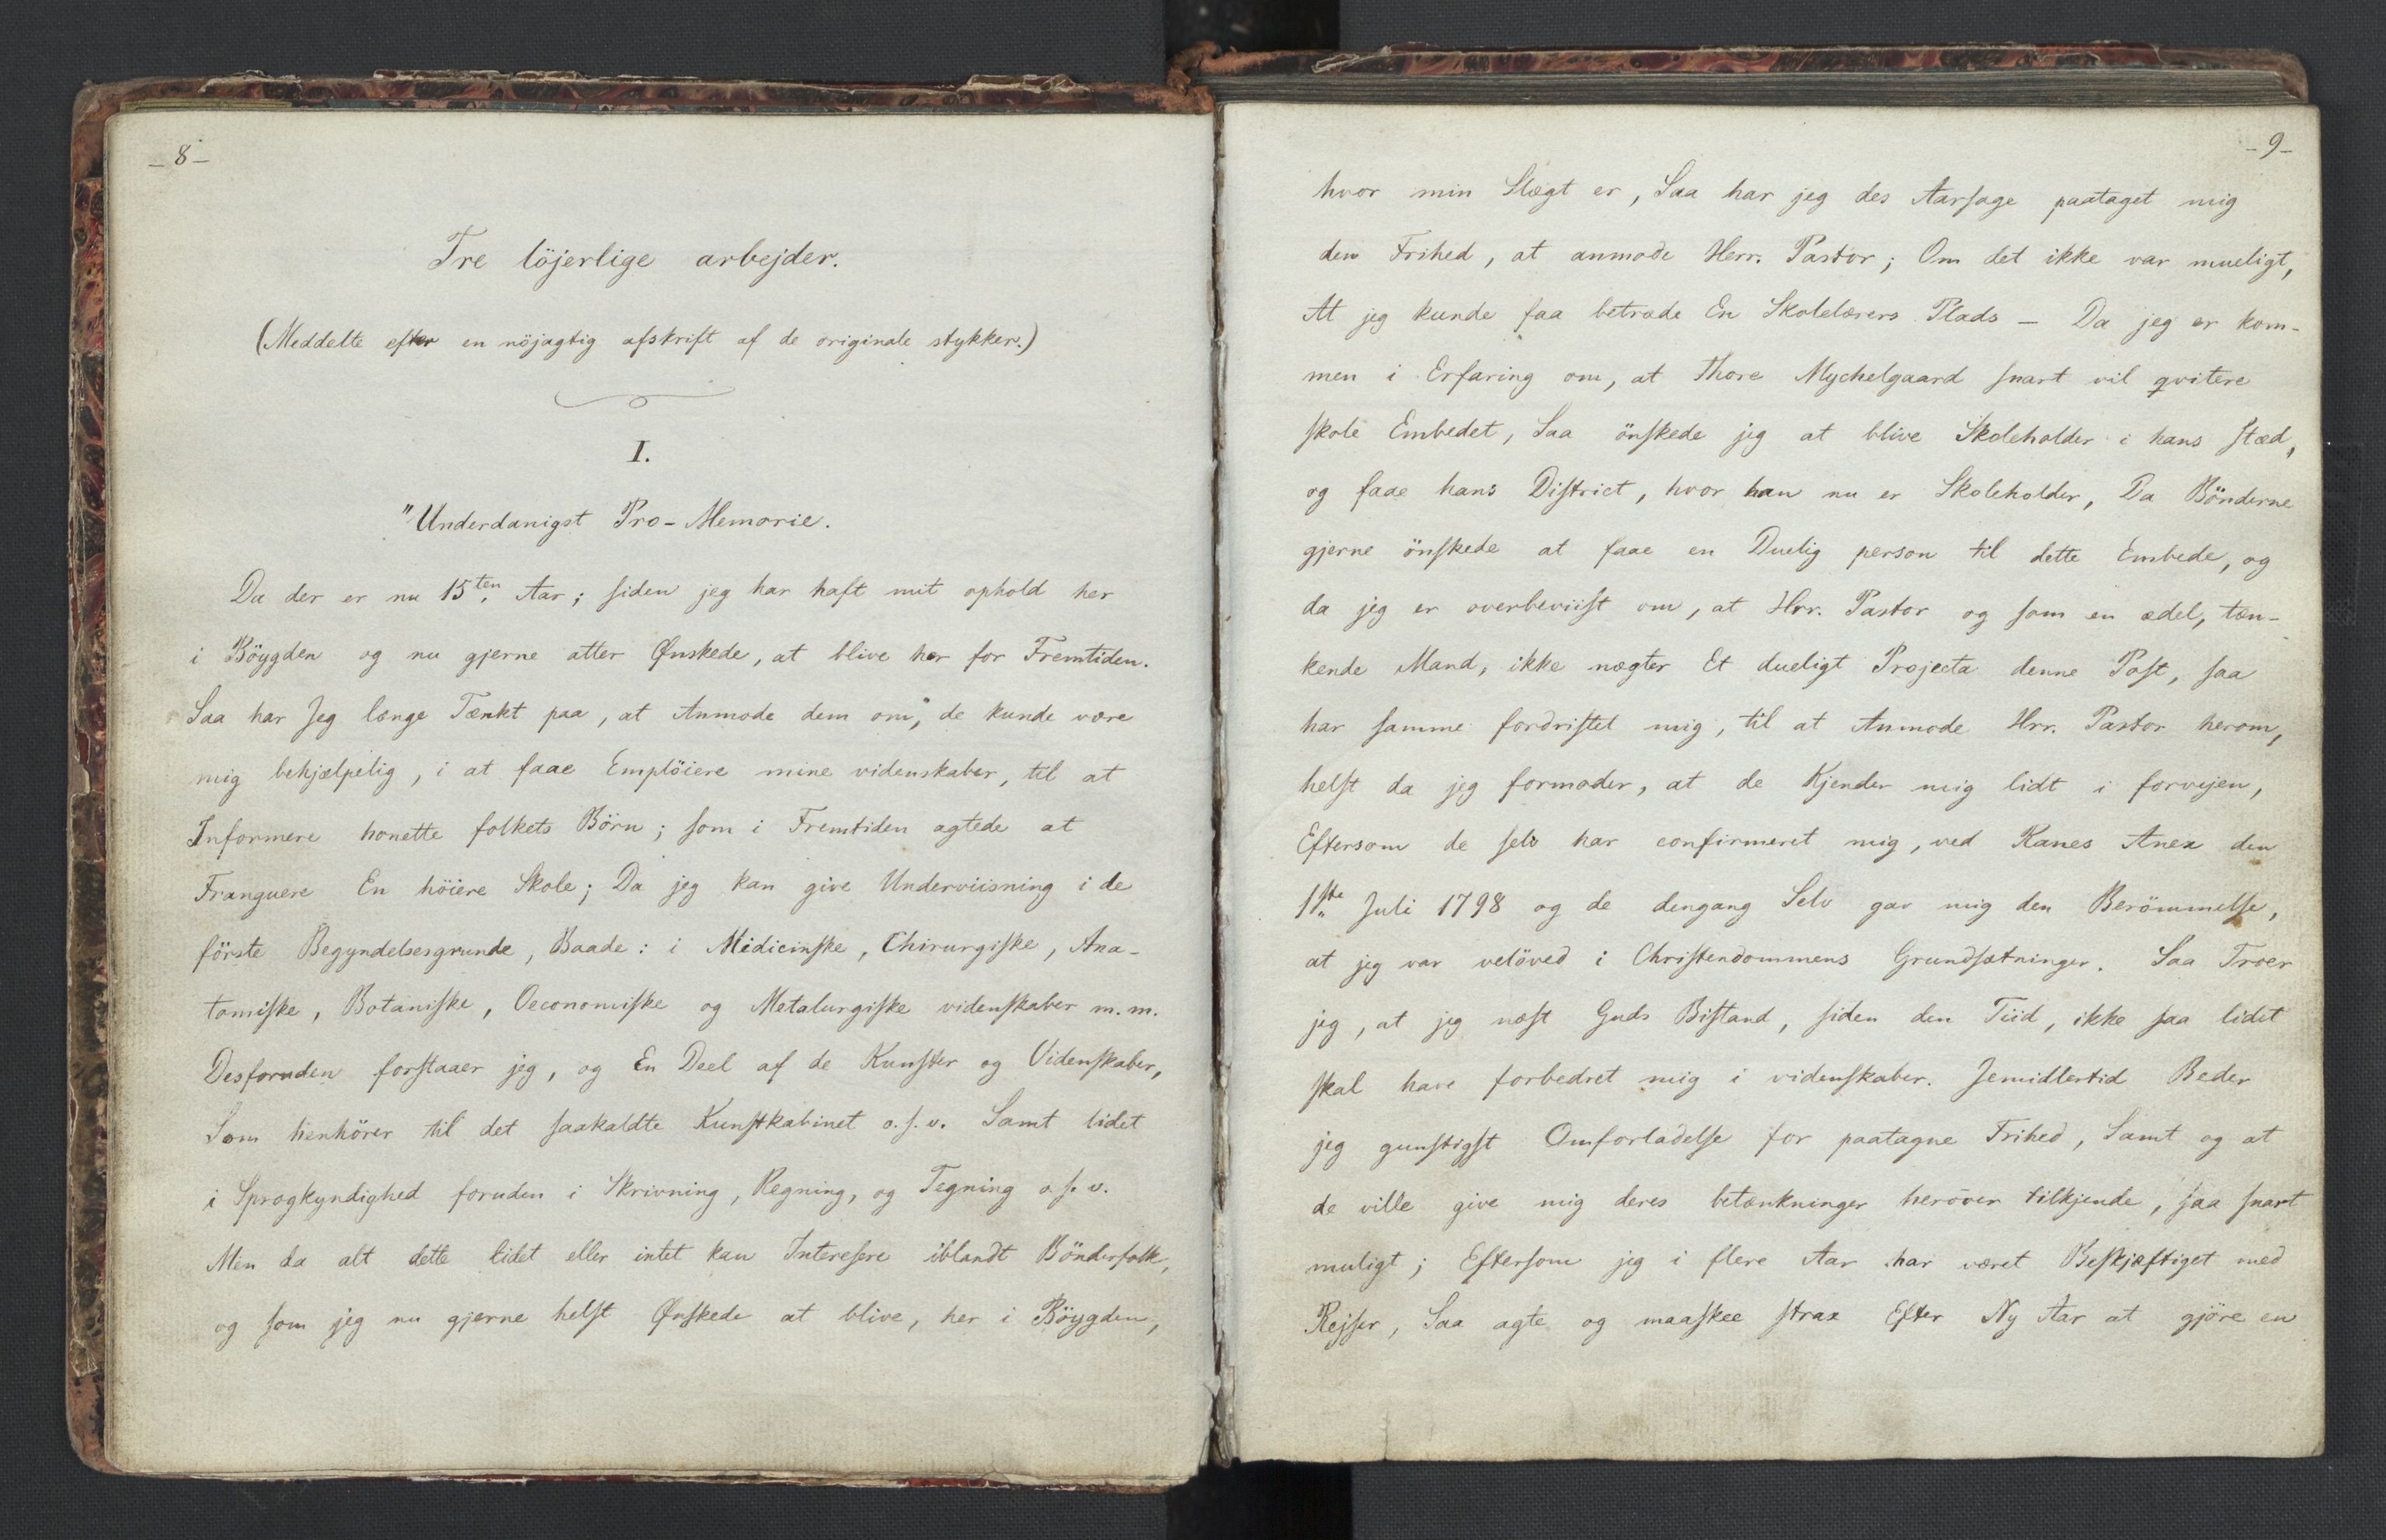 _ 8 _
Tre löjerlige arbejder.
(Meddelte efter en nöjagtig afskrift af de originale stykker.)
I.
"Underdanigst Pro-Memorie.
Da der er nu 15ten Aar; siden jeg har haft mit ophold her
i Böygden og nu gjerne atter Ønskede, at blive her for Fremtiden.
Saa har Jeg længe Tænkt paa, at Anmode dem om, de kunde være
mig behjælpelig, i at faae Emplöiere mine videnskaber, til at
Informere honette folkets Börn; som i Fremtiden agtede at
Franguere En höiere Skole; Da jeg kan give Underviisning i de
förste Begyndelsesgrunde, Baade: i Midicinske, Chirurgiske, Ana-
tomiske, Botaniske, Oeconomiske og Metalurgiske videnskaber m.m.
Desforuden forstaaer jeg, og En Deel af de Kunster og Videnskaber,
Som henhörer til det saakaldte Kunstkabinet o.s.v. Samt lidet
i Sprogkyndighed foruden i Skrivning, Regning, og Tegning o.s.v.
Men da alt dette lidet eller intet kan Interesere iblandt Bönderfolk,
og som jeg nu gjerne helst Ønskede at blive, her i Böygden,
_ 9 _
hvor min Slægt er, Saa har jeg des Aarsage paataget mig
den Frihed, at anmode Herr. Pastor; Om det ikke var mueligt,
At jeg kunde faa betræde En Skolelærers Plads _ Da jeg er kom-
men i Erfaring om, at Thore Mychelgaard snart vil qvitere
skole Embedet, Saa önskede jeg at blive Skoleholder i hans stæd,
og faae hans District, hvor han nu er Skoleholder, Da Bönderne
gjerne önskede at faae en Duelig person til dette Embede, og
da jeg er overbeviist om, at Hrr. Pastor og som en ædel, tæn-
kende Mand, ikke nægter Et dueligt Projecta denne Post, saa
har samme fordristet mig, til at Anmode Hrr. Pastor herom,
helst da jeg formoder, at de Kjender mig lidt i forvejen,
Eftersom de selv har confirmeret mig, ved Ranes Anex den
1ste Juli 1798 og de dengang Selv gav mig den Berömmelse,
at jeg var velöved i Christendommens Grundsætninger. Saa Troer
jeg, at jeg næst Guds Bistand, siden den Tiid, ikke saa lidet
skal have forbedret mig i videnskaber. Jemidlertid Beder
jeg gunstigst Omforladelse for paatagne Frihed, Samt og at
de ville give mig deres betænkninger heröver tilkjende, saa snart
muligt; Eftersom jeg i flere Aar har været Beskjæftiget med
Rejser, Saa agte og maaskee strax Efter Ny Aar at gjöre en